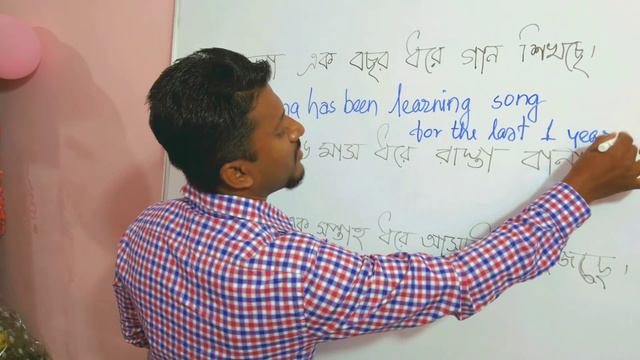 এক বছর ধরে গান শিখছে।
has been learning song
for the last 1 year
মাস ধরে রাস্তা
এক সপ্তাহ ধরে